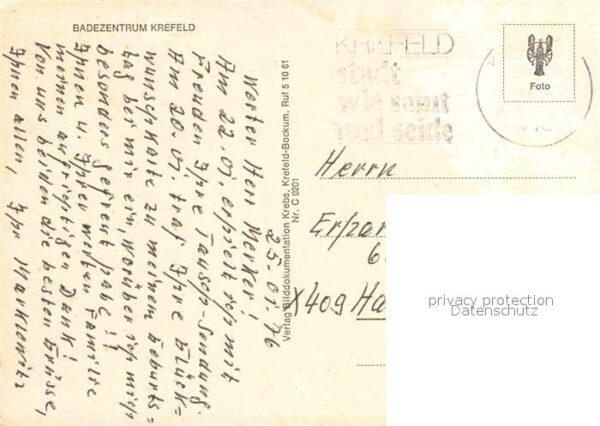 BADEZENTRUM KREFELD
25.01.76
Werter Herr Merker!
Am 22.01. erhielt ich mit
Freuden Ihre Tausch-Sendung.
Am 20.01. traf Ihre Glück=
wunschkarte zu meinem Geburts=
tag bei mir ein, worüber ich mich
besonders gefreut habe!
Ihnen u. Ihrer werten Familie
meinen aufrichtigen Dank!
Von uns beiden die besten Grüsse,
Ihnen allen, Ihr Marklewitz
Verlag Bilddokumentation Krebs, Krefeld-Bockum, Ruf 5 10 61
Nr. C 0201
KREFELD
stadt
wie samt
und seide
Foto
Herrn
X409 Ha
privacy protection
Datenschutz